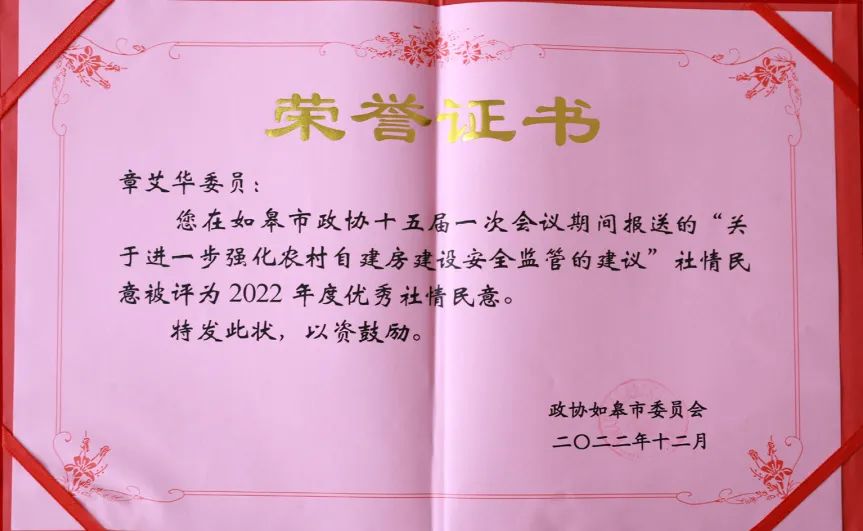 荣誉证书
章艾华委员：
您在如皋市政协十五届一次会议期间报送的“关
于进一步强化农村自建房建设安全监管的建议”社情民
意被评为 2022 年度优秀社情民意。
特发此状，以资鼓励。
政协如皋市委员会
二〇二二年十二月